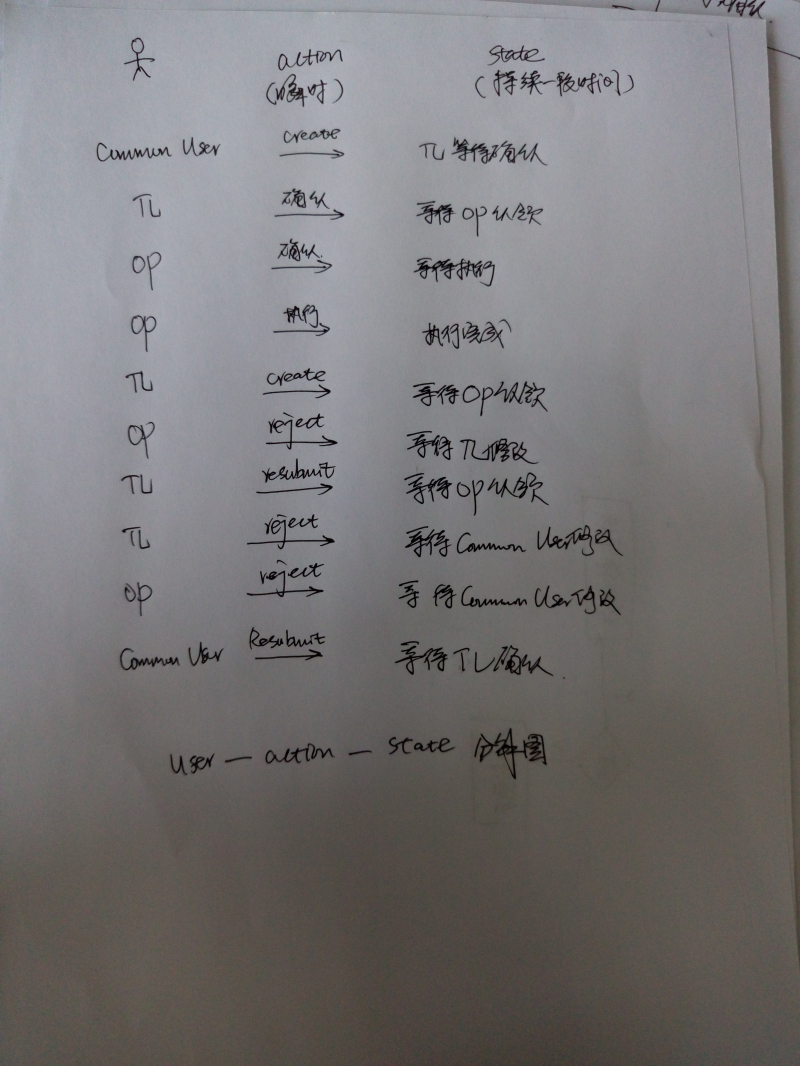 action state
(瞬时) (持续一段时间)
Common User create TL等待确认
TL 确认 等待OP认领
OP 确认 等待执行
OP 执行 执行完成
TL create 等待OP认领
OP reject 等待TL修改
TL resubmit 等待OP认领
TL reject 等待Common User修改
OP reject 等待Common User修改
Common User Resubmit 等待TL确认.
User — action — state 分解图